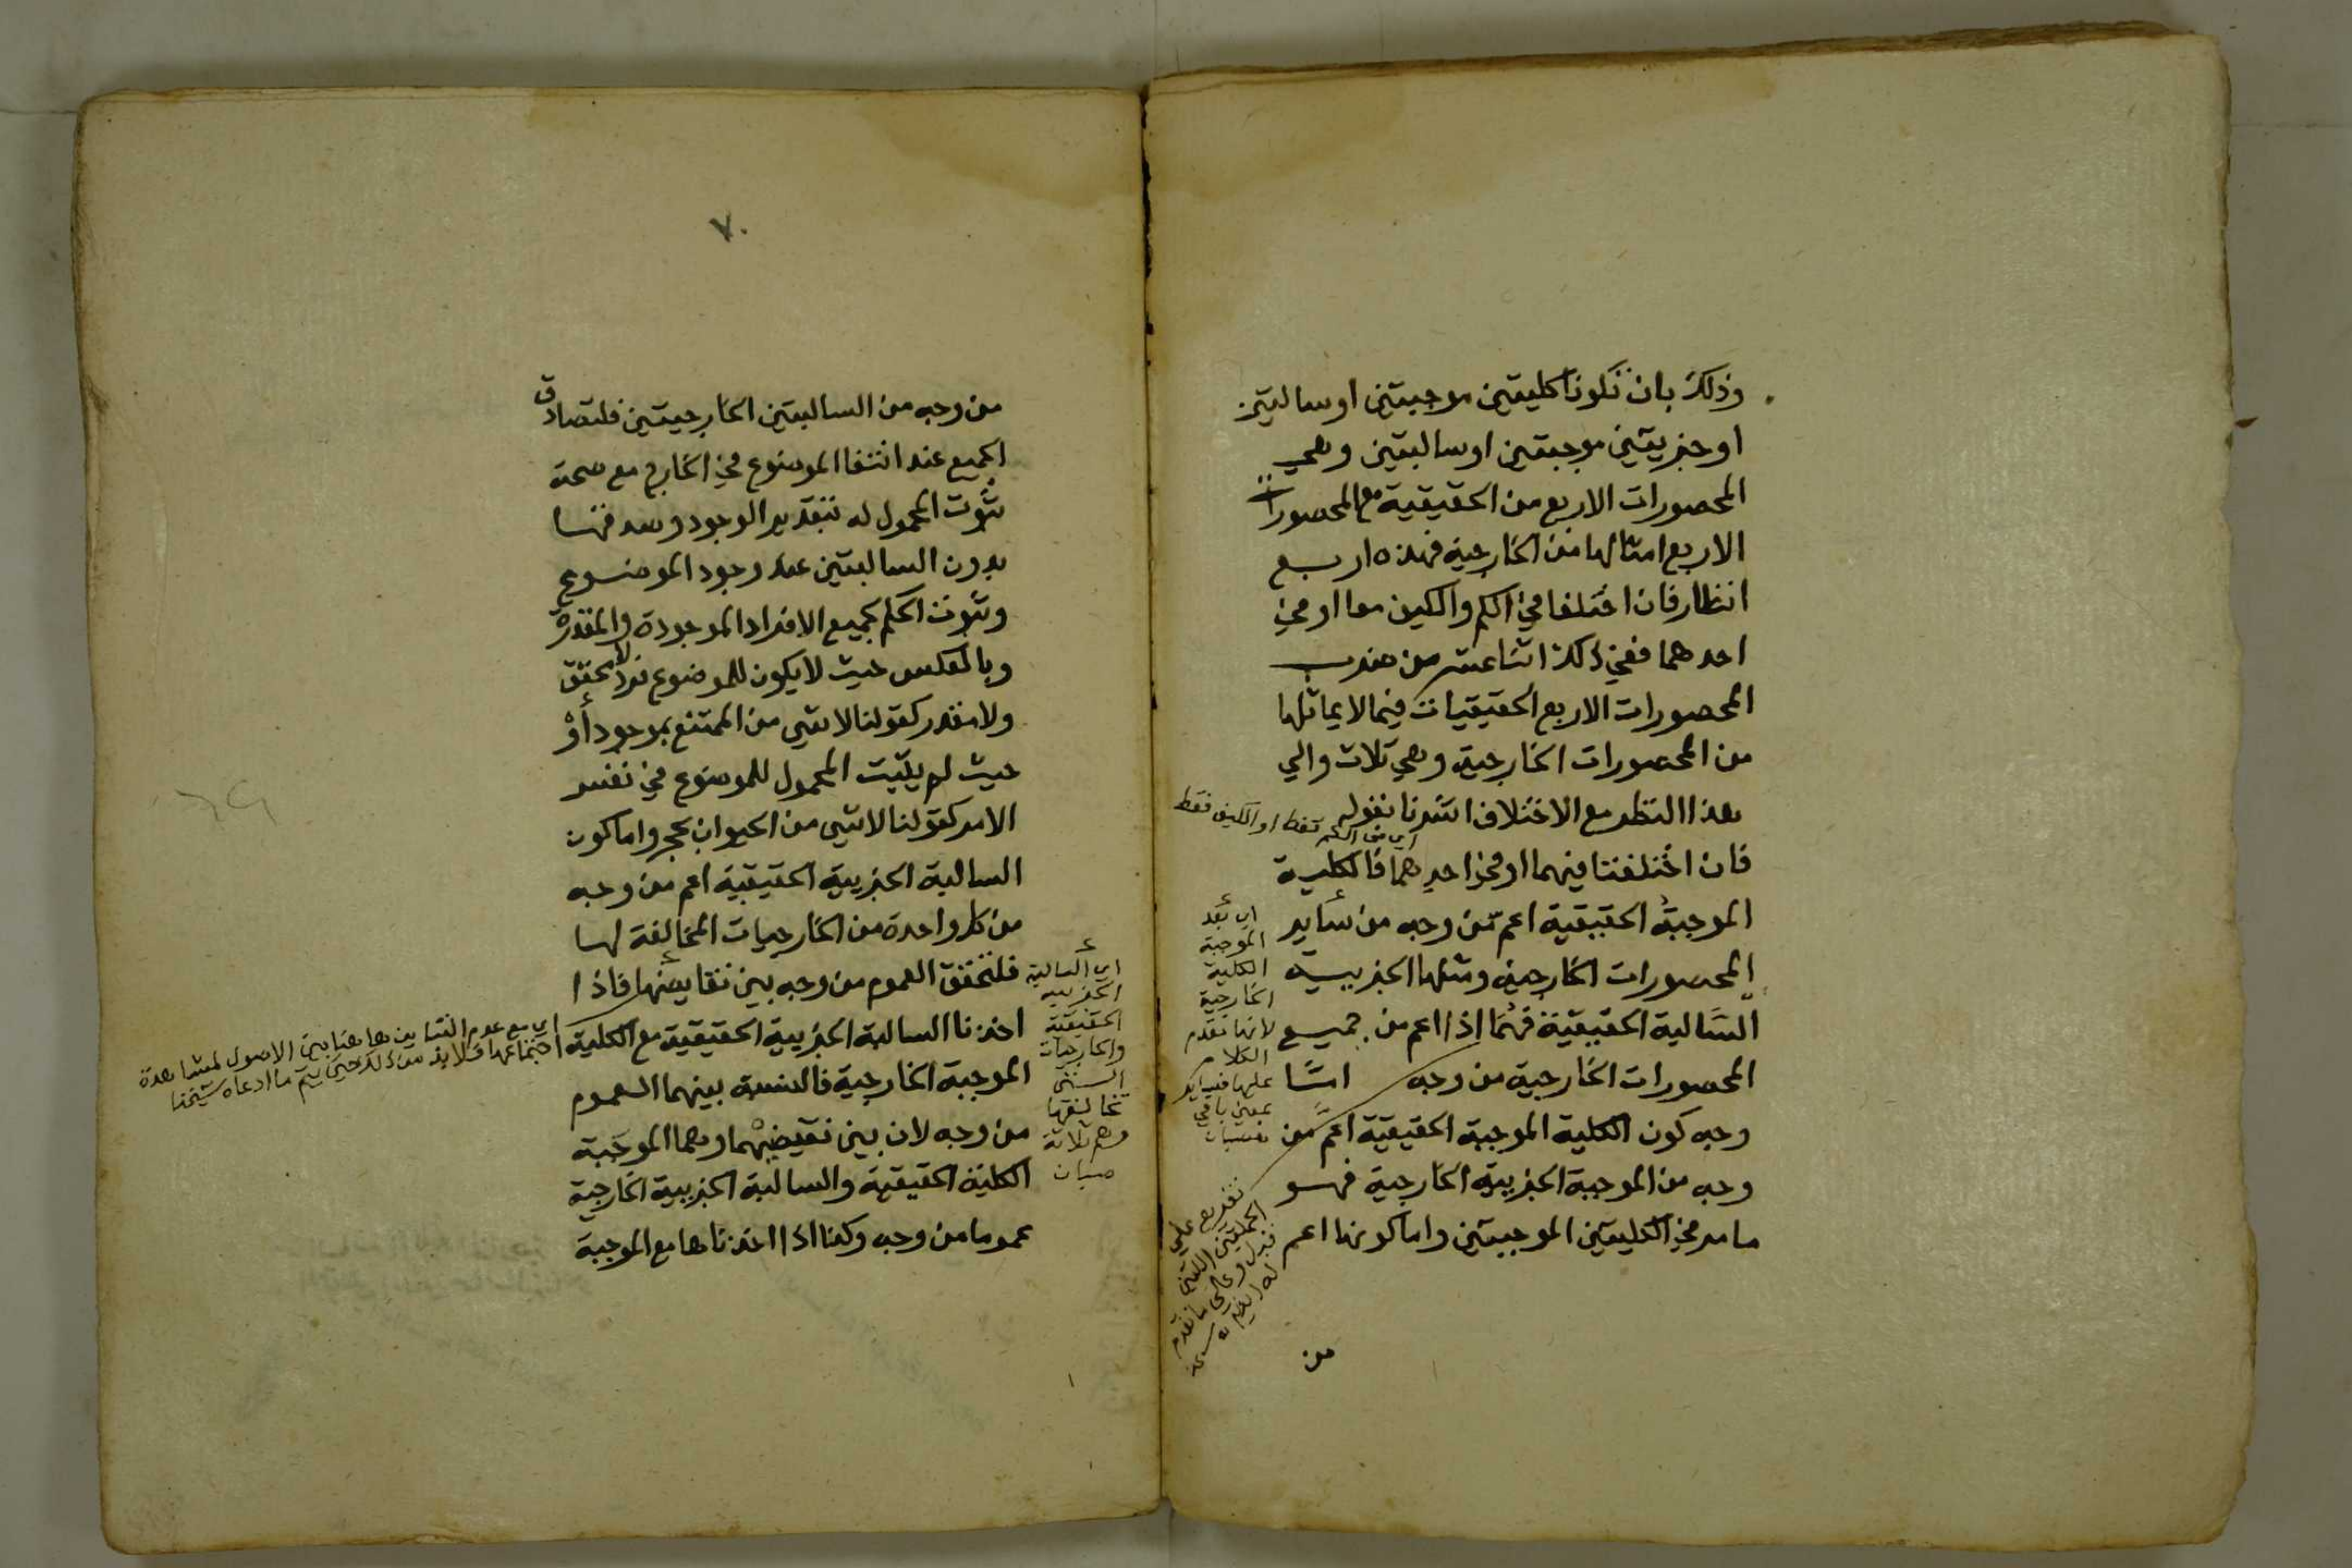 وذلك بان تكونا كليتين موجبتين او سالبتين
او جزييتين موجبتين او سالبتين وهي
المحصورات الاربع من الحقيقية مع المحصورات
الاربع امثالها من الخارجية فهذه اربع
انظار فان اختلفا في الكم والكيف معا او في
احدهما ففي ذلك اثنا عشر من ضرب
المحصورات الاربع الحقيقيات فيما لا يماثلها
من المحصورات الخارجية وهي ثلاث والي
هذا النظر مع الاختلاف اشرنا بقوله
اي في الكم فقط او الكيف فقط
فان اختلفتا فيهما او في احدهما فالكلية
الموجبة الحقيقية اعم من وجه من ساير
المحصورات الخارجية ومثلها الجزيية
السالبة الحقيقية فهما اذا اعم من جميع
المحصورات الخارجية من وجه اما
وجه كون الكلية الموجبة الحقيقية اعم من
وجه من الموجبة الجزيية الخارجية فهو
ما مر في الكليتين الموجبتين واما كونها اعم
من
اي بعد
الموجبة
الكلية
الخارجية
لانها تقدم
الكلام
عليها فساير
بمعنى باقي
تفريع علي
الجملتين اللتين
قبل وعلى ما تقدم
٧٠
من وجه من السالبتين الخارجيتين فلتصادق
الجميع عند انتفا الموضوع في الخارج مع صحة
ثبوت المحمول له بتقدير الوجود وصدقها
بدون السالبتين عند وجود الموضوع
وثبوت الحكم لجميع الافراد الموجودة والمقدرة
وبالعكس حيث لا يكون للموضوع فرد لا محقق
ولا مقدر كقولنا لا شي من الممتنع بموجود او
حيث لم يثبت المحمول للموضوع في نفس
الامر كقولنا لا شي من الحيوان بحجر واما كون
السالبة الجزيية الحقيقية اعم من وجه
من كل واحدة من الخارجيات المخالفة لها
فلتحقق العموم من وجه بين نقايضها فاذا
اخذنا السالبة الجزيية الحقيقية مع الكلية
الموجبة الخارجية فالنسبة بينهما العموم
من وجه لان بين نقيضيهما وهما الموجبة
الكلية الحقيقية والسالبة الجزيية الخارجية
عموما من وجه وكذا اذا اخذناها مع الموجبة
اي السالبة
الجزيية
الحقيقية
والخارجيات
التي
تخالفها
وهم ثلاثة
صبان
اي مع عدم التباين هاهنا بين الاصول لمشاهدة
اجتماعها فلا بد من ذلك حتى يتم ما ادعاه شيخنا